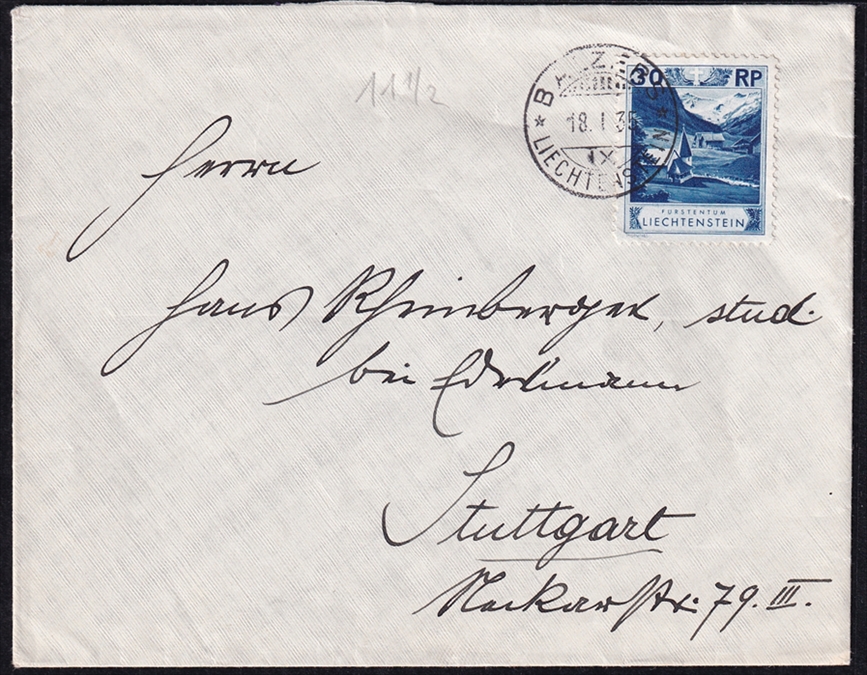 11 1/2
BALZERS
18. I 35
IX
LIECHTENSTEIN
30 RP
FÜRSTENTUM
LIECHTENSTEIN
Herrn
Hans Rheinberger, stud.
bei Edelmann
Stuttgart
Neckarstr. 79. III.